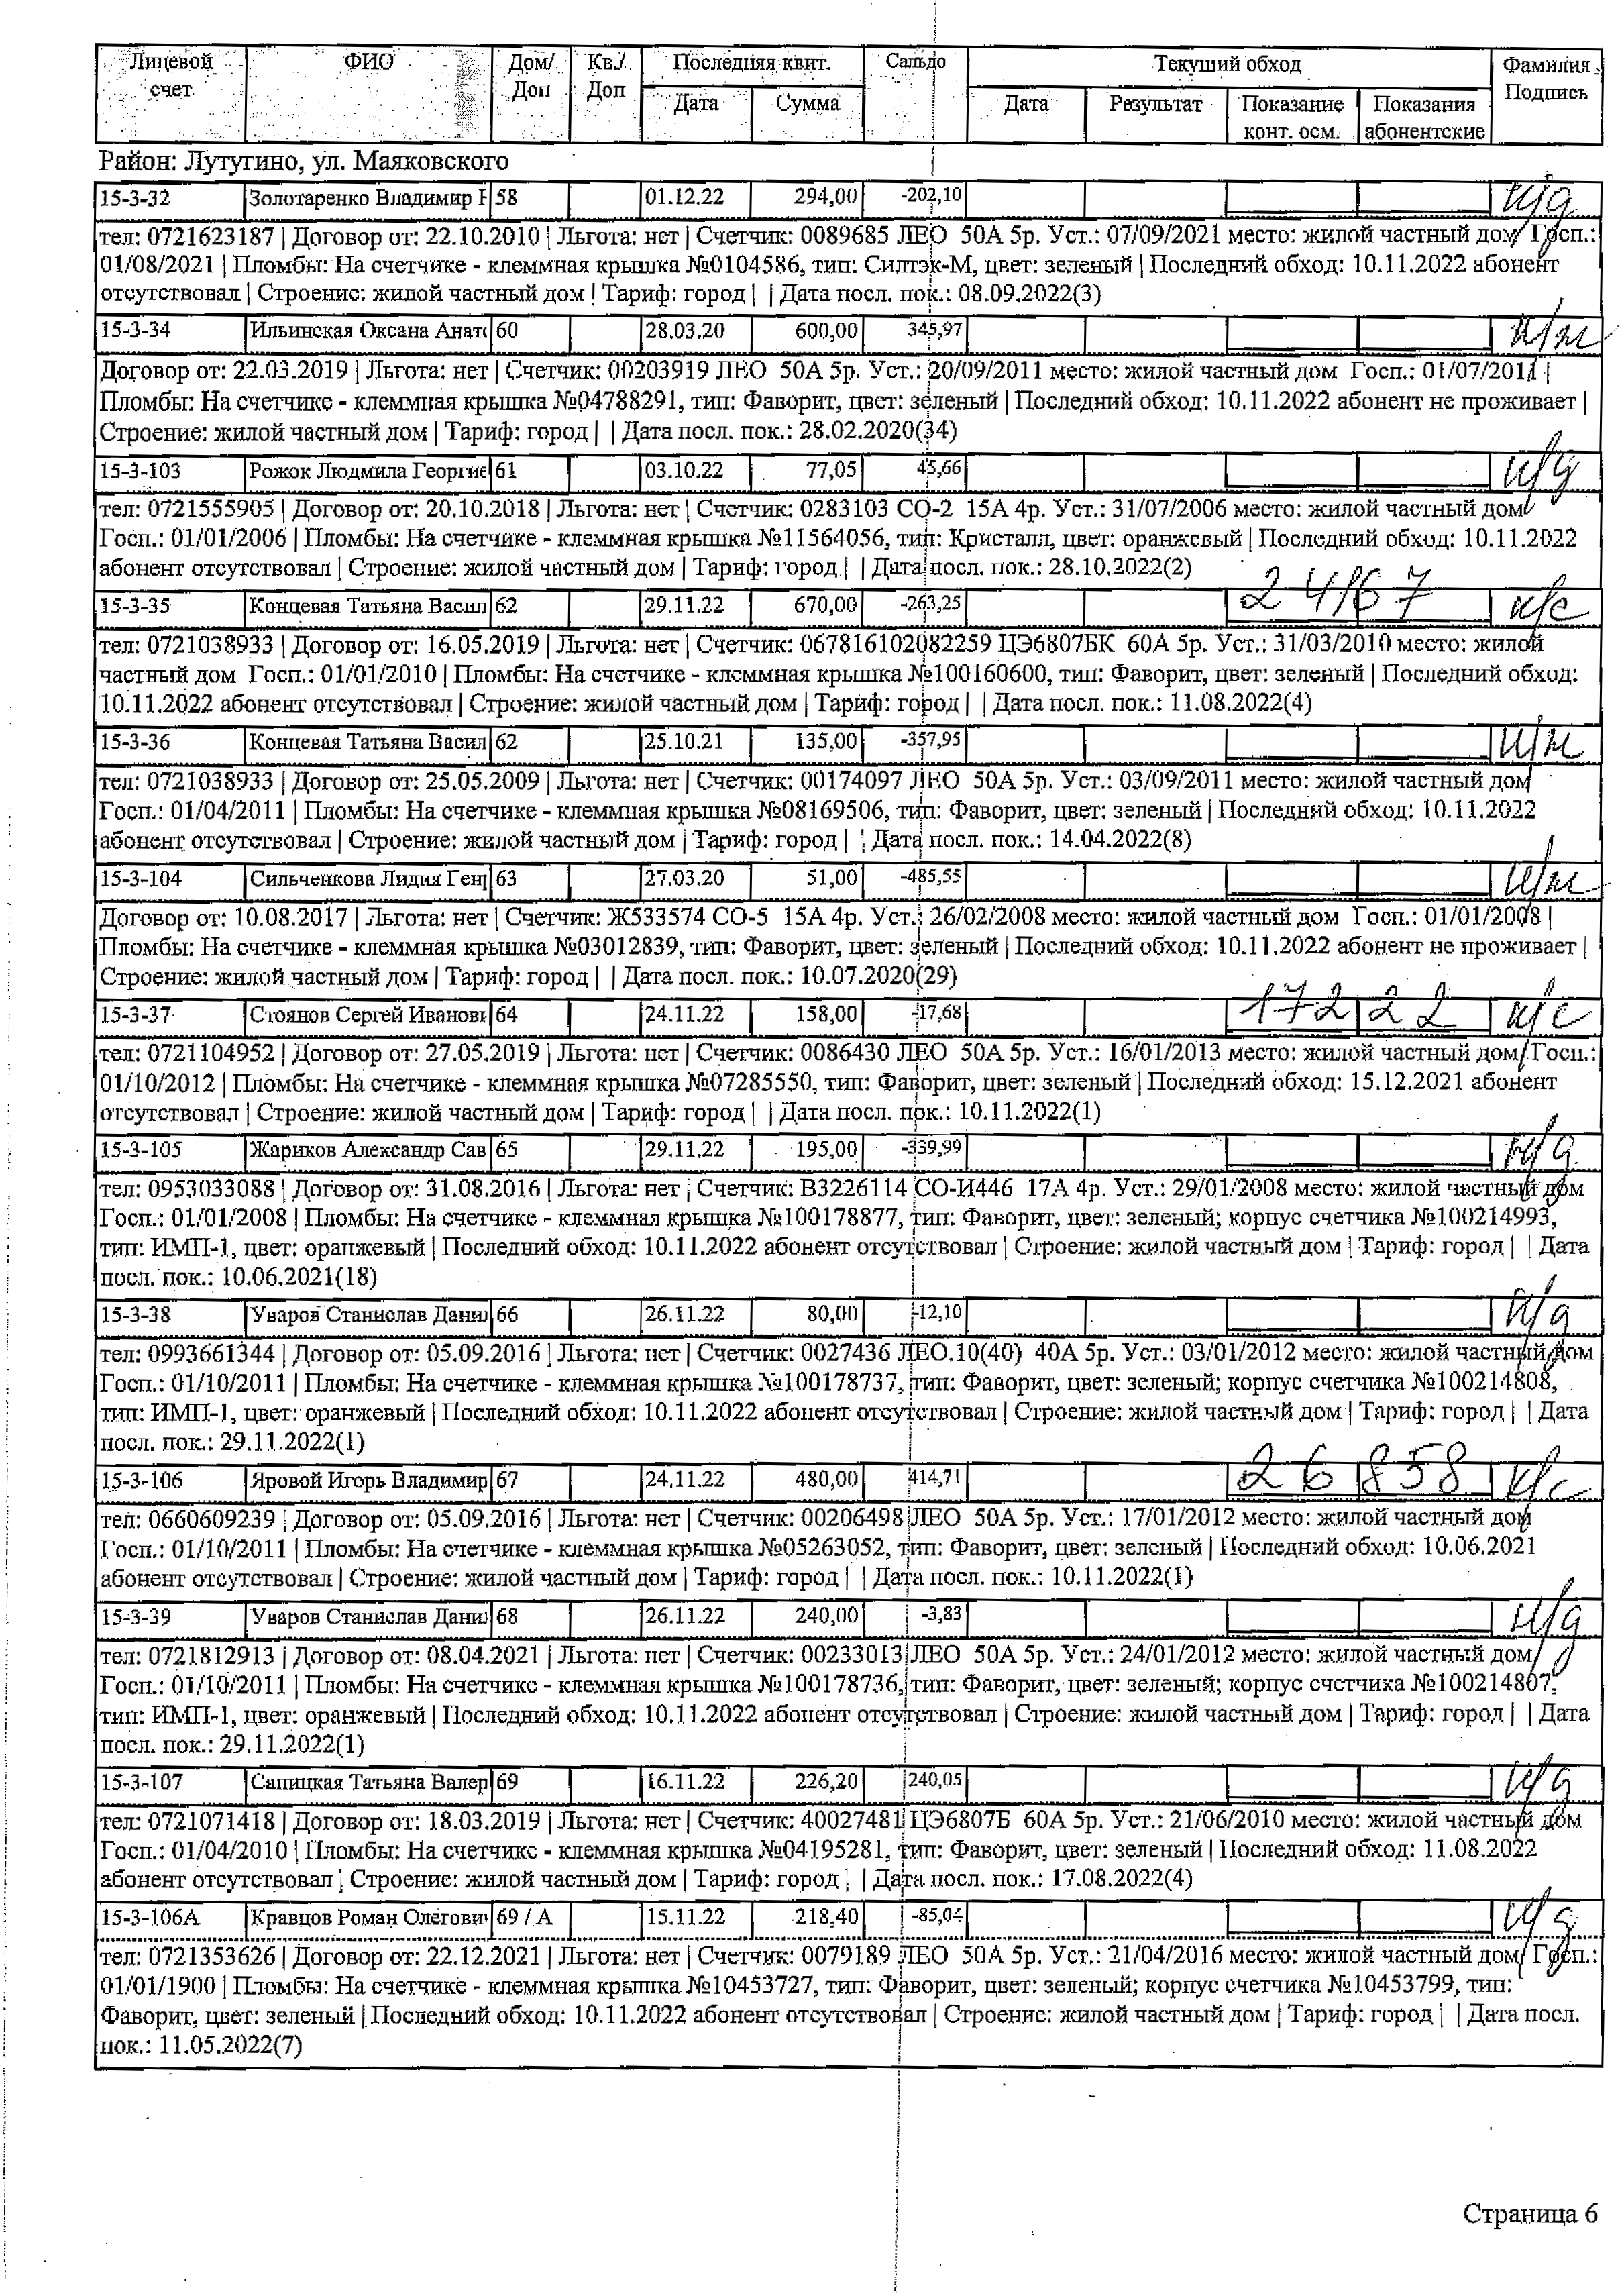 Лицевой счет ФИО Дом/Доп Кв./Доп Последняя квит. Сальдо Текущий обход Фамилия Подпись
Дата Сумма Дата Результат Показание конт. осм. Показания абонентские
Район: Лутугино, ул. Маяковского
15-3-32 Золотаренко Владимир 58 01.12.22 294,00 -202,10 н/д
тел: 0721623187 | Договор от: 22.10.2010 | Льгота: нет | Счетчик: 0089685 ЛЕО 50А 5р. Уст.: 07/09/2021 место: жилой частный дом Госп.:
01/08/2021 | Пломбы: На счетчике - клеммная крышка №0104586, тип: Силтэк-М, цвет: зеленый | Последний обход: 10.11.2022 абонент
отсутствовал | Строение: жилой частный дом | Тариф: город | | Дата посл. пок.: 08.09.2022(3)
15-3-34 Ильинская Оксана Анат 60 28.03.20 600,00 345,97 н/ж
Договор от: 22.03.2019 | Льгота: нет | Счетчик: 00203919 ЛЕО 50А 5р. Уст.: 20/09/2011 место: жилой частный дом Госп.: 01/07/2011 |
Пломбы: На счетчике - клеммная крышка №04788291, тип: Фаворит, цвет: зеленый | Последний обход: 10.11.2022 абонент не проживает |
Строение: жилой частный дом | Тариф: город | | Дата посл. пок.: 28.02.2020(34)
15-3-103 Рожок Людмила Георгие 61 03.10.22 77,05 45,66 н/д
тел: 0721555905 | Договор от: 20.10.2018 | Льгота: нет | Счетчик: 0283103 СО-2 15А 4р. Уст.: 31/07/2006 место: жилой частный дом
Госп.: 01/01/2006 | Пломбы: На счетчике - клеммная крышка №11564056, тип: Кристалл, цвет: оранжевый | Последний обход: 10.11.2022
абонент отсутствовал | Строение: жилой частный дом | Тариф: город | | Дата посл. пок.: 28.10.2022(2)
15-3-35 Концевая Татьяна Васил 62 29.11.22 670,00 -263,25 24167 к/с
тел: 0721038933 | Договор от: 16.05.2019 | Льгота: нет | Счетчик: 067816102082259 ЦЭ6807БК 60А 5р. Уст.: 31/03/2010 место: жилой
частный дом Госп.: 01/01/2010 | Пломбы: На счетчике - клеммная крышка №100160600, тип: Фаворит, цвет: зеленый | Последний обход:
10.11.2022 абонент отсутствовал | Строение: жилой частный дом | Тариф: город | | Дата посл. пок.: 11.08.2022(4)
15-3-36 Концевая Татьяна Васил 62 25.10.21 135,00 -357,95 н/ж
тел: 0721038933 | Договор от: 25.05.2009 | Льгота: нет | Счетчик: 00174097 ЛЕО 50А 5р. Уст.: 03/09/2011 место: жилой частный дом
Госп.: 01/04/2011 | Пломбы: На счетчике - клеммная крышка №08169506, тип: Фаворит, цвет: зеленый | Последний обход: 10.11.2022
абонент отсутствовал | Строение: жилой частный дом | Тариф: город | | Дата посл. пок.: 14.04.2022(8)
15-3-104 Сильченкова Лидия Ген 63 27.03.20 51,00 -485,55 н/ж
Договор от: 10.08.2017 | Льгота: нет | Счетчик: Ж533574 СО-5 15А 4р. Уст.: 26/02/2008 место: жилой частный дом Госп.: 01/01/2008 |
Пломбы: На счетчике - клеммная крышка №03012839, тип: Фаворит, цвет: зеленый | Последний обход: 10.11.2022 абонент не проживает |
Строение: жилой частный дом | Тариф: город | | Дата посл. пок.: 10.07.2020(29)
15-3-37 Стоянов Сергей Иванов 64 24.11.22 158,00 -17,68 17222 к/с
тел: 0721104952 | Договор от: 27.05.2019 | Льгота: нет | Счетчик: 0086430 ЛЕО 50А 5р. Уст.: 16/01/2013 место: жилой частный дом Госп.:
01/10/2012 | Пломбы: На счетчике - клеммная крышка №07285550, тип: Фаворит, цвет: зеленый | Последний обход: 15.12.2021 абонент
отсутствовал | Строение: жилой частный дом | Тариф: город | | Дата посл. пок.: 10.11.2022(1)
15-3-105 Жариков Александр Сав 65 29.11.22 195,00 -339,99 н/д
тел: 0953033088 | Договор от: 31.08.2016 | Льгота: нет | Счетчик: В3226114 СО-И446 17А 4р. Уст.: 29/01/2008 место: жилой частный дом
Госп.: 01/01/2008 | Пломбы: На счетчике - клеммная крышка №100178877, тип: Фаворит, цвет: зеленый; корпус счетчика №100214993,
тип: ИМП-1, цвет: оранжевый | Последний обход: 10.11.2022 абонент отсутствовал | Строение: жилой частный дом | Тариф: город | | Дата
посл. пок.: 10.06.2021(18)
15-3-38 Уваров Станислав Дани 66 26.11.22 80,00 -12,10 н/д
тел: 0993661344 | Договор от: 05.09.2016 | Льгота: нет | Счетчик: 0027436 ЛЕО.10(40) 40А 5р. Уст.: 03/01/2012 место: жилой частный дом
Госп.: 01/10/2011 | Пломбы: На счетчике - клеммная крышка №100178737, тип: Фаворит, цвет: зеленый; корпус счетчика №100214808,
тип: ИМП-1, цвет: оранжевый | Последний обход: 10.11.2022 абонент отсутствовал | Строение: жилой частный дом | Тариф: город | | Дата
посл. пок.: 29.11.2022(1)
15-3-106 Яровой Игорь Владимир 67 24.11.22 480,00 414,71 26858 к/с
тел: 0660609239 | Договор от: 05.09.2016 | Льгота: нет | Счетчик: 00206498 ЛЕО 50А 5р. Уст.: 17/01/2012 место: жилой частный дом
Госп.: 01/10/2011 | Пломбы: На счетчике - клеммная крышка №05263052, тип: Фаворит, цвет: зеленый | Последний обход: 10.06.2021
абонент отсутствовал | Строение: жилой частный дом | Тариф: город | | Дата посл. пок.: 10.11.2022(1)
15-3-39 Уваров Станислав Дани 68 26.11.22 240,00 -3,83 н/д
тел: 0721812913 | Договор от: 08.04.2021 | Льгота: нет | Счетчик: 00233013 ЛЕО 50А 5р. Уст.: 24/01/2012 место: жилой частный дом
Госп.: 01/10/2011 | Пломбы: На счетчике - клеммная крышка №100178736, тип: Фаворит, цвет: зеленый; корпус счетчика №100214807,
тип: ИМП-1, цвет: оранжевый | Последний обход: 10.11.2022 абонент отсутствовал | Строение: жилой частный дом | Тариф: город | | Дата
посл. пок.: 29.11.2022(1)
15-3-107 Сапицкая Татьяна Валер 69 16.11.22 226,20 240,05 н/д
тел: 0721071418 | Договор от: 18.03.2019 | Льгота: нет | Счетчик: 40027481 ЦЭ6807Б 60А 5р. Уст.: 21/06/2010 место: жилой частный дом
Госп.: 01/04/2010 | Пломбы: На счетчике - клеммная крышка №04195281, тип: Фаворит, цвет: зеленый | Последний обход: 11.08.2022
абонент отсутствовал | Строение: жилой частный дом | Тариф: город | | Дата посл. пок.: 17.08.2022(4)
15-3-106А Кравцов Роман Олегови 69 / А 15.11.22 218,40 -85,04 н/д
тел: 0721353626 | Договор от: 22.12.2021 | Льгота: нет | Счетчик: 0079189 ЛЕО 50А 5р. Уст.: 21/04/2016 место: жилой частный дом Госп.:
01/01/1900 | Пломбы: На счетчике - клеммная крышка №10453727, тип: Фаворит, цвет: зеленый; корпус счетчика №10453799, тип:
Фаворит, цвет: зеленый | Последний обход: 10.11.2022 абонент отсутствовал | Строение: жилой частный дом | Тариф: город | | Дата посл.
пок.: 11.05.2022(7)
Страница 6